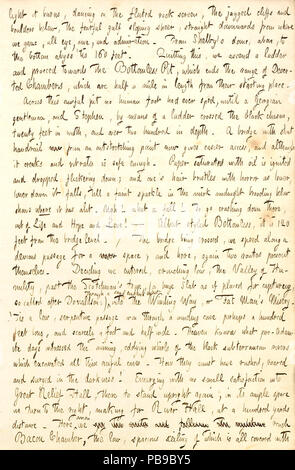 light it burns, dancing on the fluted rock screen, the jagged cliffs and
boulders below. The fearful gulf sloping sheer straight downwards from where
we gaze, all eye, awe, and admiration. From Shelby's dome, alone, to
the bottom abyss is 160 feet. Quitting this, we ascend a ladder
and proceed towards the Bottomless Pit, which ends the range of Deser-
ted Chambers, which are half a mile in length from their starting place.
Across this awful pit no human foot had ever sped, until a Georgian
gentleman, and Stephen, by means of a ladder crossed the black chasm,
twenty feet in width, and over two hundred in depth. A bridge with stout
handrail now from an outstretching point now gives easier access, and although
it creaks and vibrates is safe enough. Paper saturated with oil is ignited
and dropped fluttering down; and one's hair bristles with horror as lower
lower down it falls, till a faint sparkle in the midst midnight brooding below
shows where it has alit. What a fall! To go crashing down there
out of Life and Hope and Love! Albeit styled Bottomless, it is 160
feet from the bridge level. The bridge being crossed, we speed along a
devious passage for a space, and here, again two routes present
themselves. Deciding we entered, crouching low, the Valley of Hu-
mility, past the Scotchman's Trap, (a huge slab as of placed for capturing
so called after Donaldson,) into the Winding Way, or Fat Man's Misery.
'Tis a low, serpentine passage worn through a winding cave perhaps a hundred
feet long, and scarcely a foot and half wide. Heaven knows what pre-Adam-
ite days witnessed the mining, eddying whirls of the black subterranean rivers
which excavated all this awful cave. How they must have rushed, roared
and surged in the darkness! Emerging with no small satisfaction into
Great Relief Hall, (here to stand upright again,) in its ample space
we turn to the right, making for River Hall, at a hundred yards
distance. Here we
Bacon Chamber, this low, spacious ceiling of which is all covered with
PB9BY5